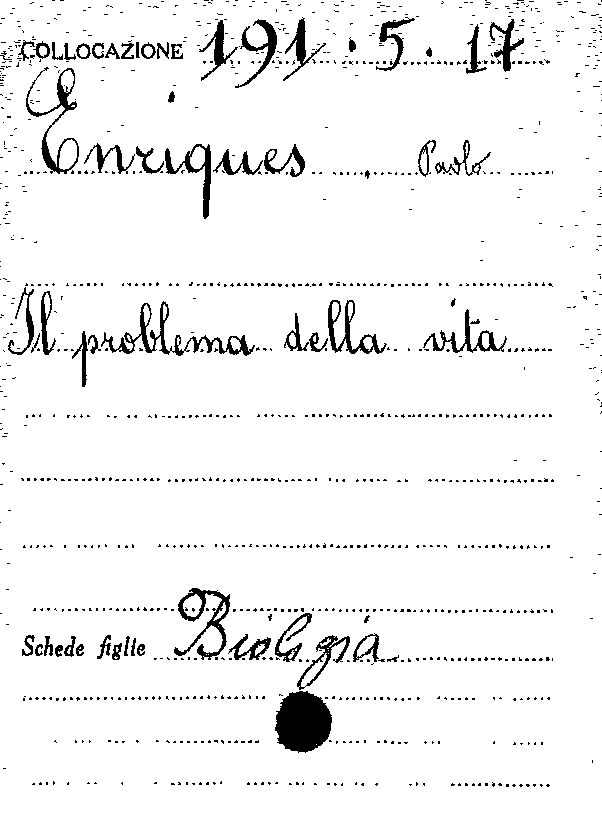 COLLOCAZIONE 191.5.17
Enriques, Paolo
Il problema della vita
Schede figlie Biologia